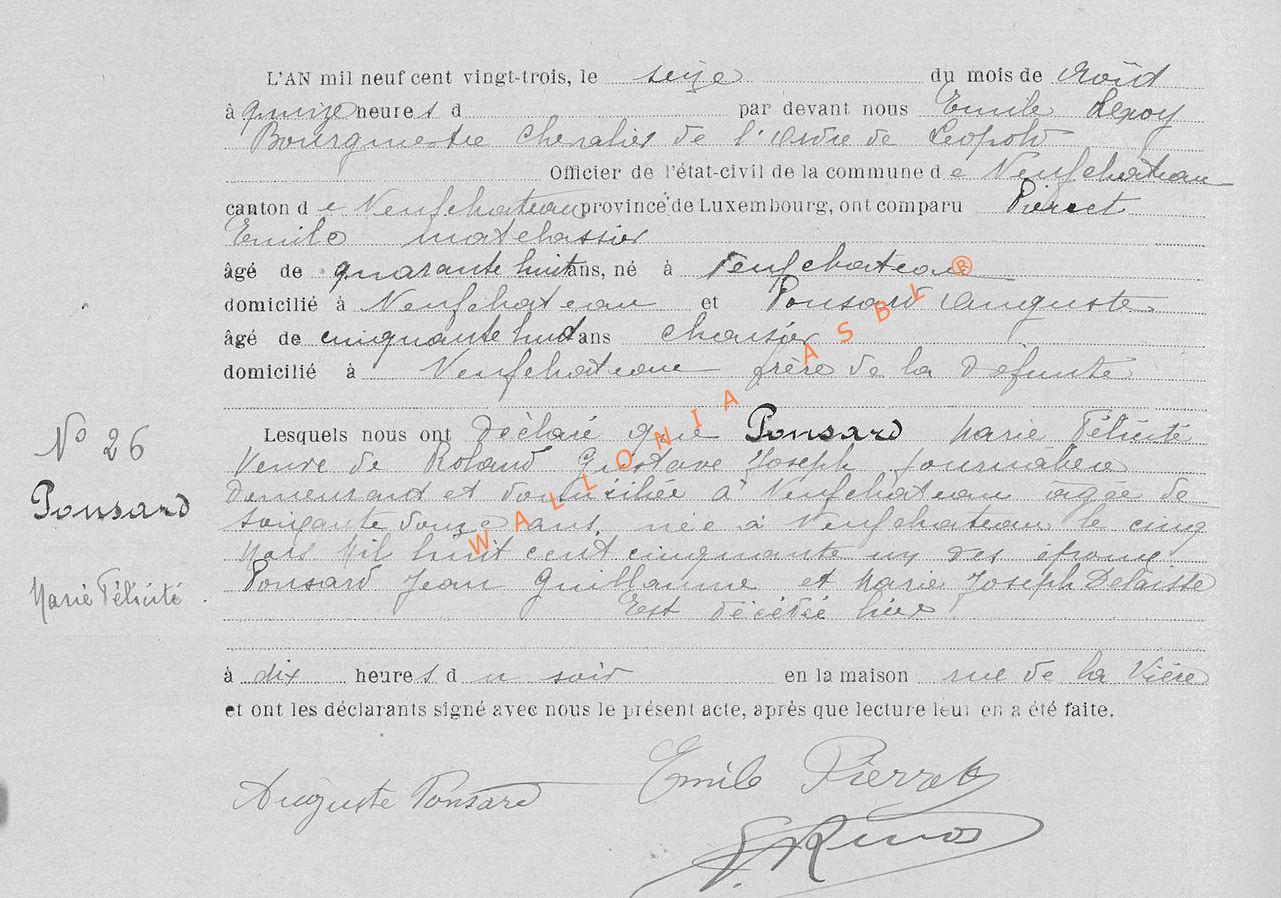 L'AN mil neuf cent vingt-trois, le seize du mois de Août
à quinze heures d par devant nous Emile
Bourgmestre Chevalier de l'Ordre de Leopold
Officier de l'état-civil de la commune de Neufchateau
canton de Neufchateau province de Luxembourg, ont comparu Pierret
Emile matelassier
âgé de quarante huit ans, né à Neufchateau
domicilié à Neufchateau et Ponsard Auguste
âgé de cinquante huit ans
domicilié à Neufchateau frère de la défunte
Lesquels nous ont déclaré que Ponsard Marie Félicité
N° 26
Veuve de Roland Gustave Joseph journalière
demeurant et domiciliée à Neufchateau agée de
Ponsard
soixante douze ans, née à Neufchateau le cinq
Mars Mil huit cent cinquante un des époux
Ponsard Jean Guillaume et Marie Joseph Delaisse
Marie Félicité
Est décédée hier
à dix heures du soir en la maison rue de la
et ont les déclarants signé avec nous le présent acte, après que lecture leur en a été faite.
Auguste Ponsard Emile Pierret
WALLONIA ASBL ®